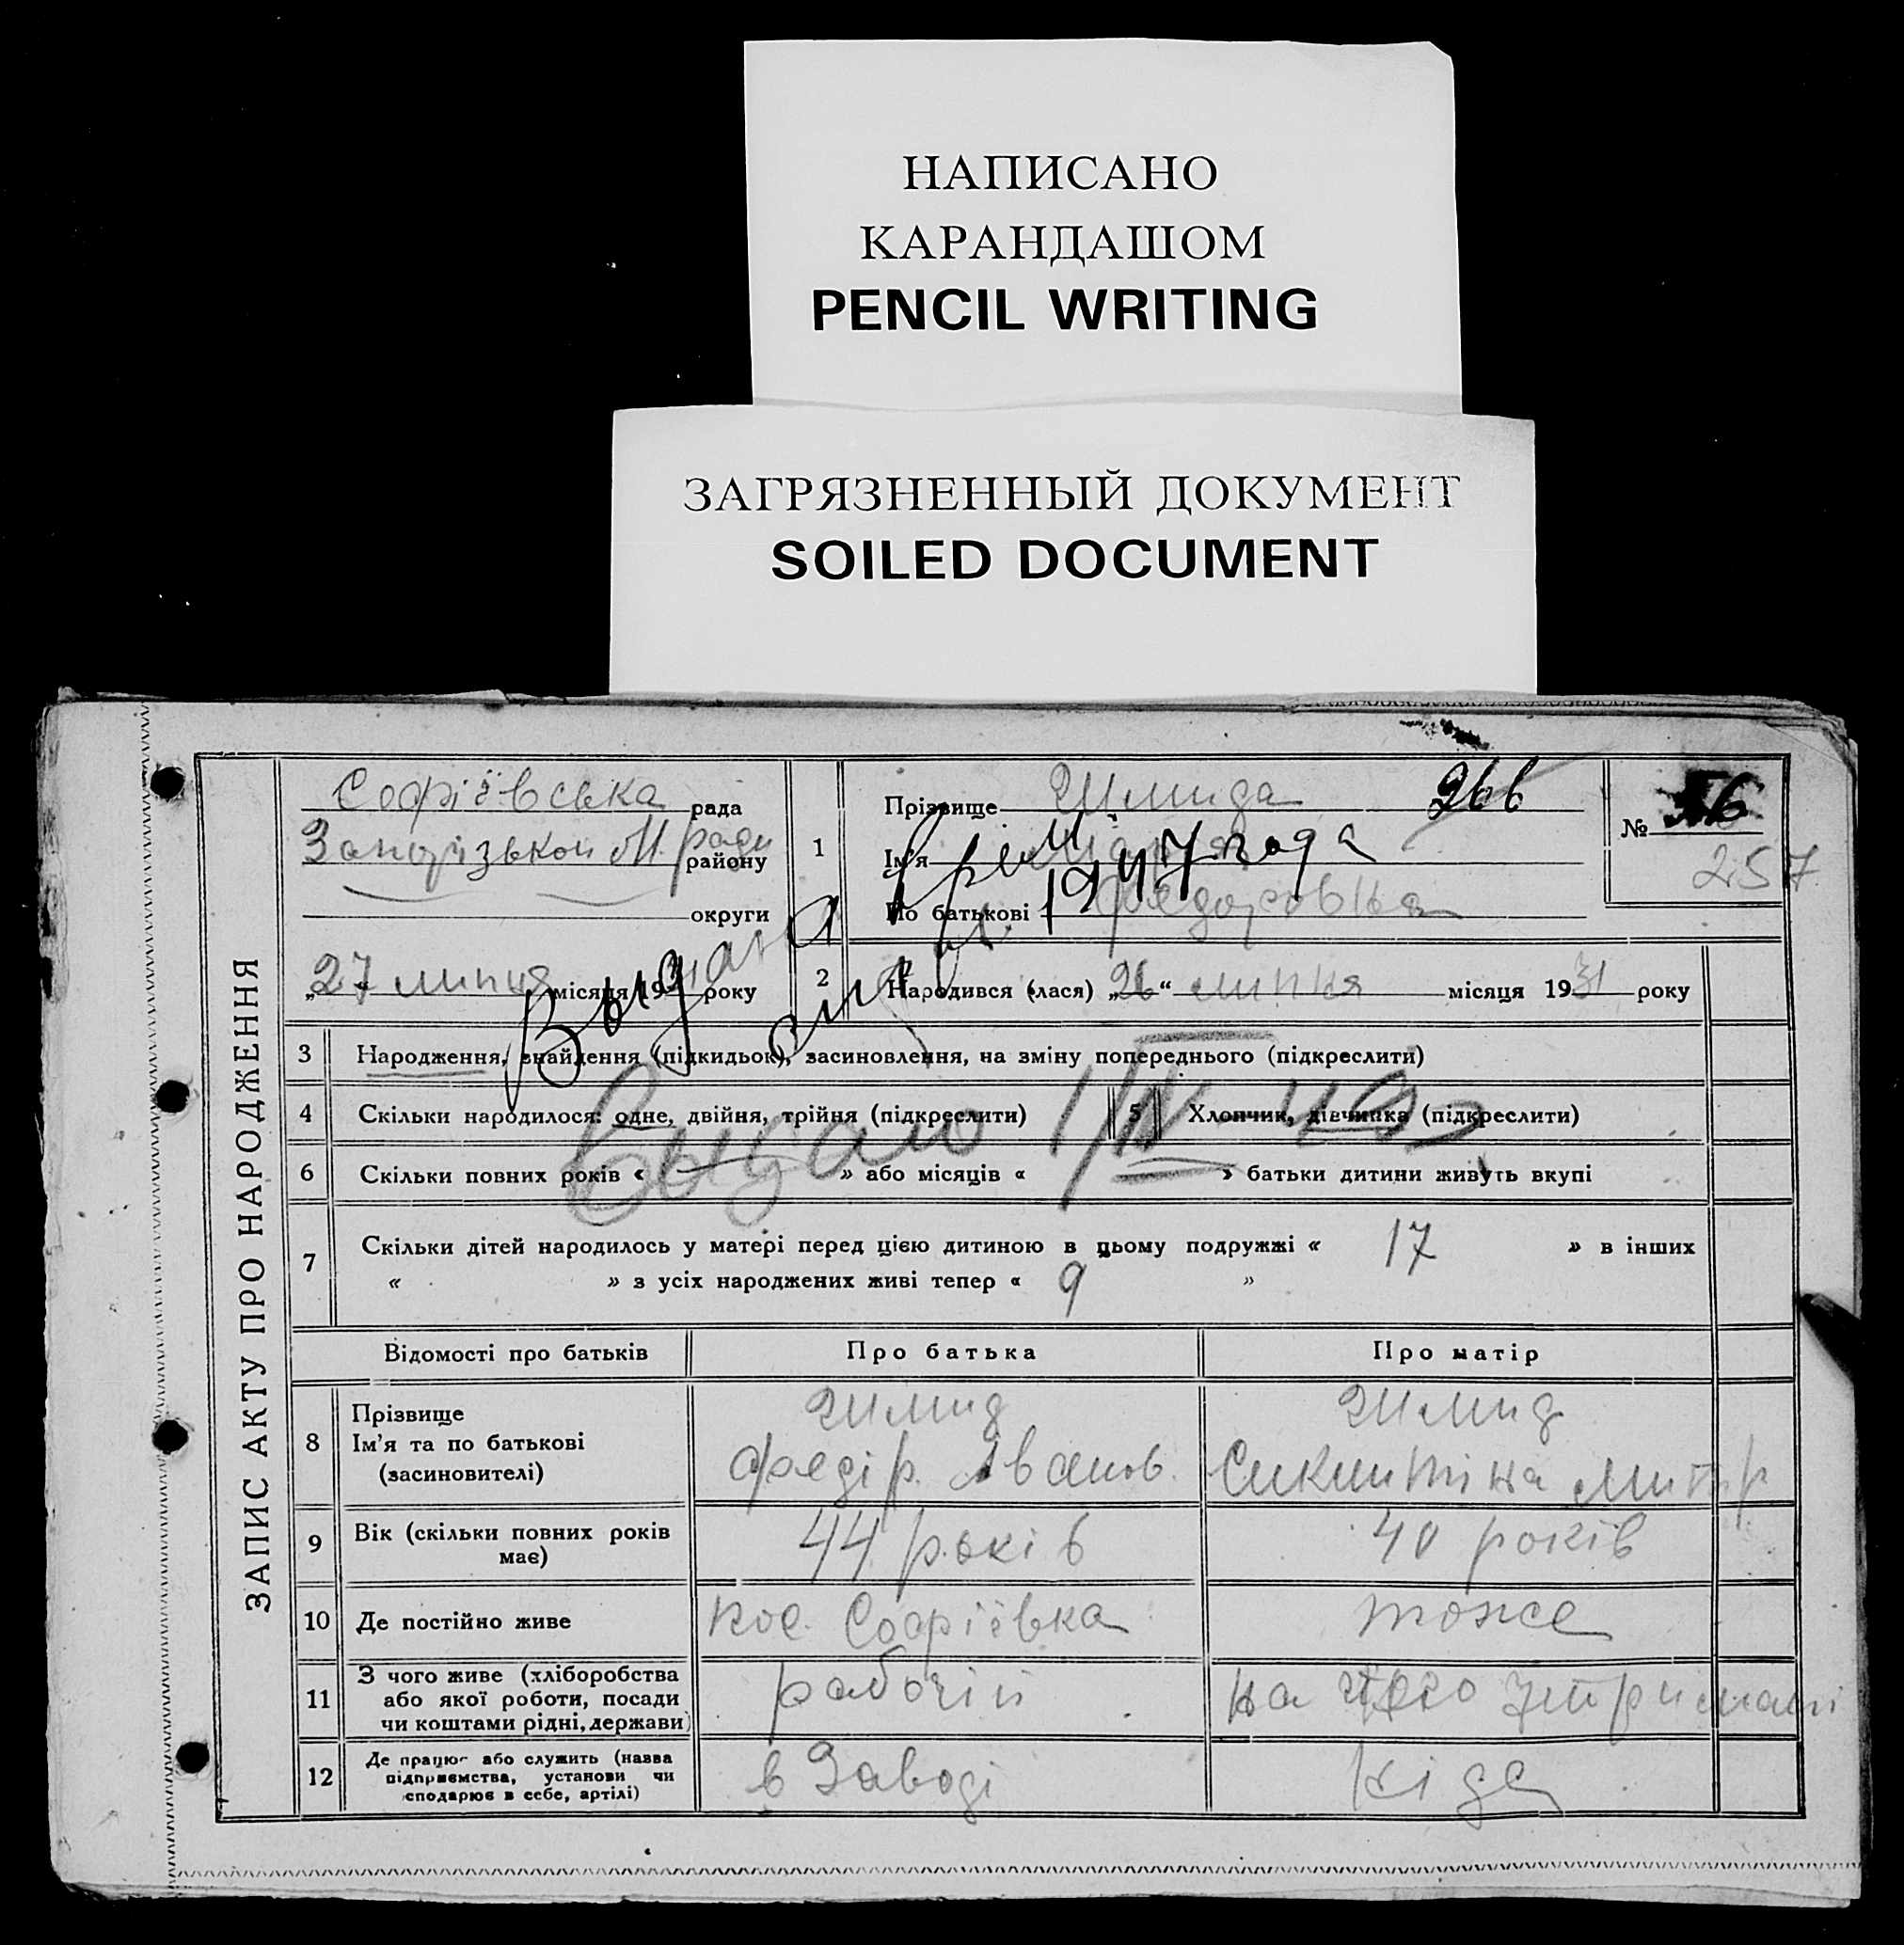 НАПИСАНО
КАРАНДАШОМ
PENCIL WRITING
ЗАГРЯЗНЕННЫЙ ДОКУМЕНТ
SOILED DOCUMENT
ЗАПИС АКТУ ПРО НАРОДЖЕННЯ
Софіївська рада
району
округи
1
Прізвище Шмида 266
Ім'я
По батькові Федоровна
1947 года
№ 56
257
„27 липня місяця 1931 року
2 Народився (лася) „26“ липня місяця 1931 року
Выдана
3 Народження, знайдення (підкидьок), засиновлення, на зміну попереднього (підкреслити)
4 Скільки народилося: одне, двійня, трійня (підкреслити)
5 Хлопчик, дівчинка (підкреслити)
6 Скільки повних років « — » або місяців « » батьки дитини живуть вкупі
7 Скільки дітей народилось у матері перед цією дитиною в цьому подружжі « 17 » в інших
« » з усіх народжених живі тепер « 9 »
Відомості про батьків Про батька Про матір
8 Прізвище
Ім'я та по батькові
(засиновителі)
Шмид
Федір. Іванов.
Шмид
9 Вік (скільки повних років
має)
44 років
40 років
10 Де постійно живе
пос. Софіївка
тоже
11 З чого живе (хліборобства
або якої роботи, посади
чи коштами рідні, держави)
рабочій
на його утримані
12 Де працює або служить (назва
підприємства, установи чи
сподарює в себе, артілі)
в Заводі